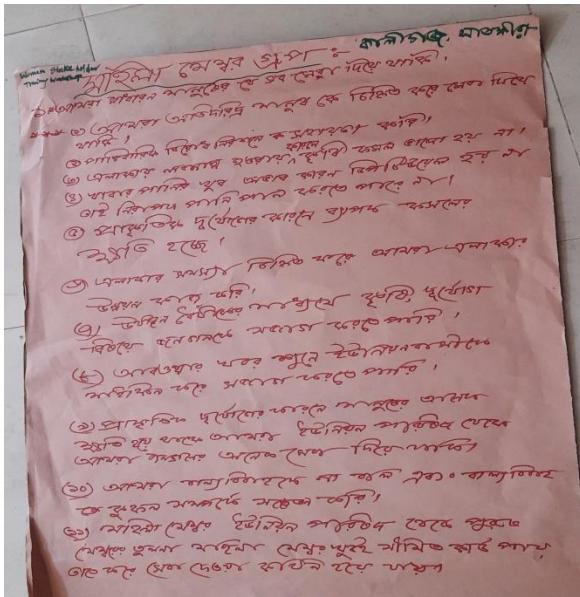 Women Stake holder
Training workshop
কালীগঞ্জ, সাতক্ষীরা
মহিলা মেম্বর গ্রুপ:
১* আমরা সাধারন মানুষের যে সব সেবা দিয়ে থাকি।
① আমরা অতিদরিদ্র মানুষ কে চিহ্নিত করে সেবা দিয়ে
থাকি।
② পারিবারিক বিরোধ নিরসনে সহায়তা করি।
③ এলাকায় লবনাক্ত হওয়ার কারনে কৃষি ফসল ভালো হয় না।
④ খাবার পানির খুব অভাব কারন টিউবওয়েল হয় না
তাই নিরাপদ পানি পান করতে পারে না।
⑤ প্রাকৃতিক দুর্যোগের কারনে ব্যাপক ফসলের
ক্ষতি হচ্ছে।
⑥ এলাকার সমস্যা চিহ্নিত করে আমরা এলাকার
উন্নয়ন কাজ করি।
⑦ উঠান বৈঠকের মাধ্যমে কৃষি, দুর্যোগ
বিষয়ে জনগনকে সজাগ করতে পারি।
⑧ আবওয়ার খবর শুনে ইউনিয়নবাসীকে
মাইকিং করে সজাগ করতে পারি।
⑨ প্রাকৃতিক দুর্যোগের কারনে মানুষের অনেক
ক্ষতি হয় থাকে আমরা ইউনিয়ন পরিষদ থেকে
আমরা তাদের অনেক সেবা দিয়ে থাকি।
⑩ আমরা বাল্যবিবাহকে না বলি এবং বাল্যবিবাহ
কে কুফল সম্পর্কে সচেতন করি।
⑪ মহিলা মেম্বর ইউনিয়ন পরিষদ থেকে পুরুষ
মেম্বরের তুলনা মহিলা মেম্বর খুবই সীমিত কার্ড পায়
তাতে করে সেবা দেওয়া কঠিন হয়ে যায়।